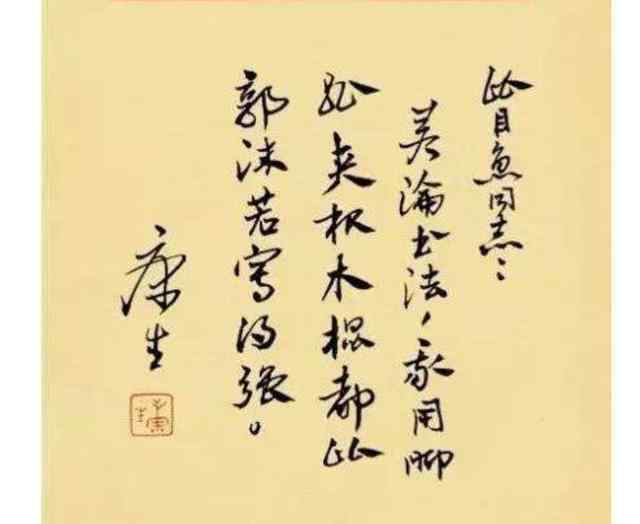 比目魚同志：
若論书法，我用脚
趾夹根木棍都比
郭沫若寫得强。
康生